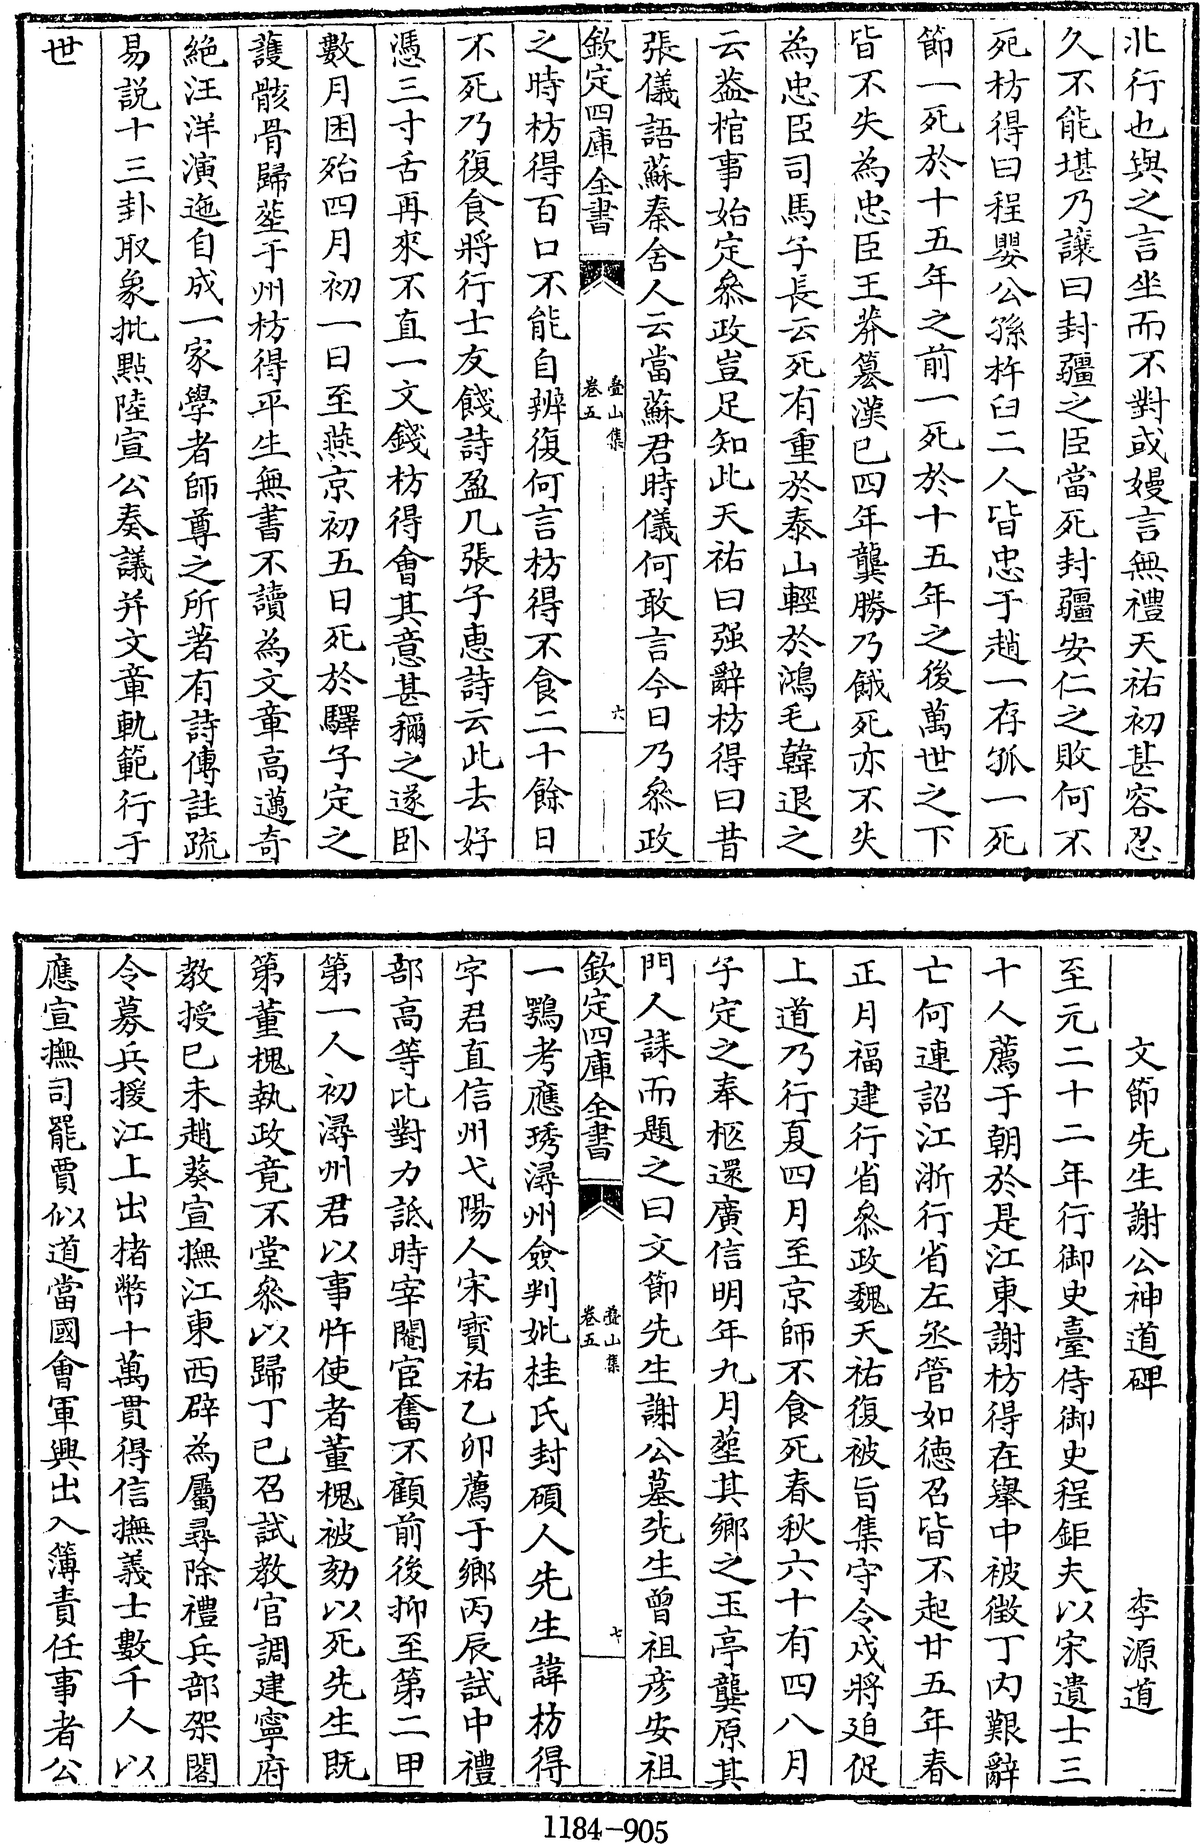 北行也與之言坐而不對或嫚言無禮天祐初甚容忍
久不能堪乃讓曰封疆之臣當死封疆安仁之敗何不
死枋得曰程嬰公孫杵臼二人皆忠于趙一存孤一死
節一死於十五年之前一死於十五年之後萬世之下
皆不失為忠臣王莽簒漢已四年龔勝乃餓死亦不失
為忠臣司馬子長云死有重於泰山輕於鴻毛韓退之
云葢棺事始定叅政豈足知此天祐曰强辭枋得曰昔
張儀語蘇秦舍人云當蘇君時儀何敢言今日乃叅政
欽定四庫全書
疊山集
卷五
六
之時枋得百口不能自辨復何言枋得不食二十餘日
不死乃復食將行士友餞詩盈几張子惠詩云此去好
憑三寸舌再來不直一文錢枋得會其意甚穪之遂卧
數月困殆四月初一日至燕京初五日死於驛子定之
護骸骨歸塟于州枋得平生無書不讀為文章高邁奇
絶汪洋演迤自成一家學者師尊之所著有詩傳註疏
易説十三卦取象批點陸宣公奏議并文章軌範行于
世
文節先生謝公神道碑 李源道
至元二十二年行御史臺侍御史程鉅夫以宋遺士三
十人薦于朝於是江東謝枋得在舉中被徵丁内艱辭
亡何連詔江浙行省左丞管如德召皆不起廿五年春
正月福建行省叅政魏天祐復被旨集守令戍將廹促
上道乃行夏四月至京師不食死春秋六十有四八月
子定之奉柩還廣信明年九月塟其鄉之玉亭龔原其
門人誄而題之曰文節先生謝公墓先生曾祖彦安祖
欽定四庫全書
疊山集
卷五
七
一鶚考應琇潯州僉判妣桂氏封碩人先生諱枋得
字君直信州弋陽人宋寳祐乙卯薦于鄉丙辰試中禮
部高等比對力詆時宰閹宦奮不顧前後抑至第二甲
第一人初潯州君以事忤使者董槐被劾以死先生既
第董槐執政竟不堂叅以歸丁已召試教官調建寧府
教授已未趙葵宣撫江東西辟為屬尋除禮兵部架閣
令募兵援江上出楮幣十萬貫得信撫義士數千人以
應宣撫司罷賈似道當國會軍興出入簿責任事者公
1184-905